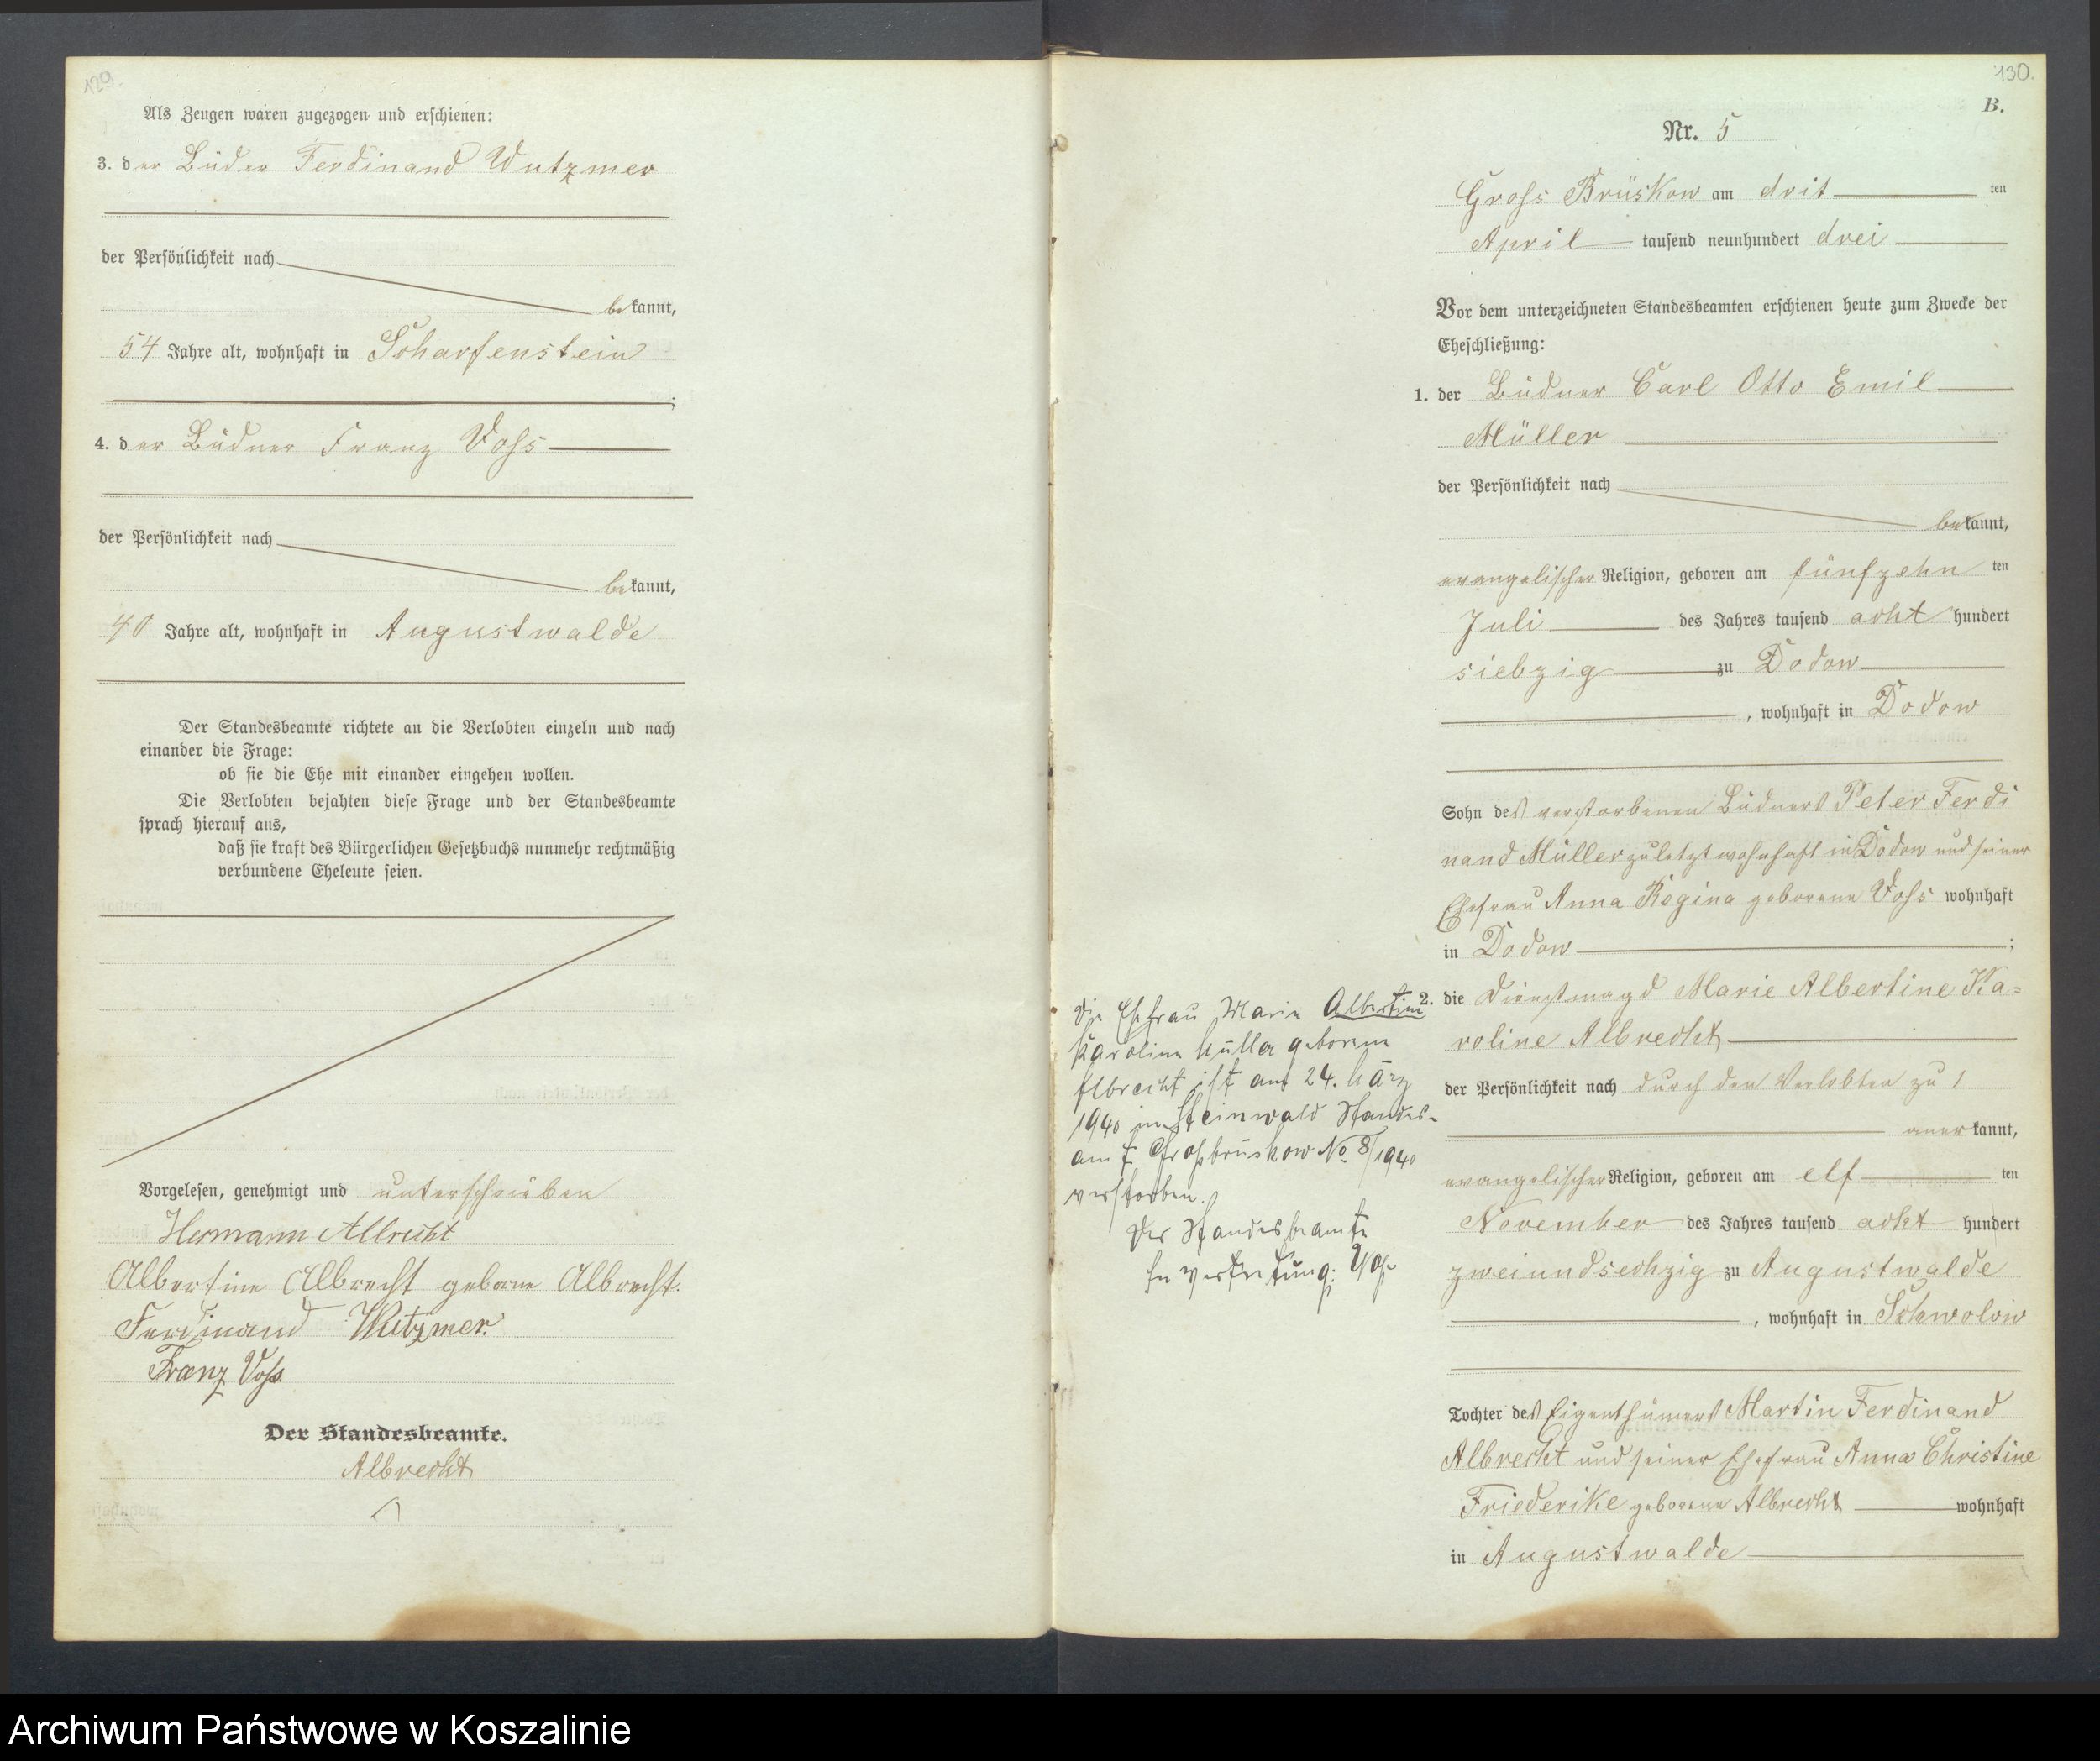 129.
Als Zeugen waren zugezogen und erschienen:
3. der Büdner Ferdinand Wutzmer
der Persönlichkeit nach
bekannt,
54 Jahre alt, wohnhaft in Scharfenstein
;
4. der Büdner Franz Voß
der Persönlichkeit nach
bekannt,
40 Jahre alt, wohnhaft in Augustwalde
Der Standesbeamte richtete an die Verlobten einzeln und nach
einander die Frage:
ob sie die Ehe mit einander eingehen wollen.
Die Verlobten bejahten diese Frage und der Standesbeamte
sprach hierauf aus,
daß sie kraft des Bürgerlichen Gesetzbuchs nunmehr rechtmäßig
verbundene Eheleute seien.
Vorgelesen, genehmigt und unterschrieben
Hermann Albrecht
Albertine Albrecht geborne Albrecht.
Ferdinand Wutzmer.
Franz Voß
Der Standesbeamte.
Albrecht
130.
B.
Nr. 5
Groß Brüskow am drit ten
April tausend neunhundert drei
Vor dem unterzeichneten Standesbeamten erschienen heute zum Zwecke der
Eheschließung:
1. der Büdner Carl Otto Emil
Müller
der Persönlichkeit nach
bekannt,
evangelischer Religion, geboren am fünfzehn ten
Juli des Jahres tausend acht hundert
siebzig zu Dodow
, wohnhaft in Dodow
Sohn des verstorbenen Büdners Peter Ferdi
nand Müller zuletzt wohnhaft in Dodow und seiner
Ehefrau Anna Regina geborene Voß wohnhaft
in Dodow ;
2. die Dienstmagd Marie Albertine Ka=
roline Albrecht
der Persönlichkeit nach durch den Verlobten zu 1
anerkannt,
evangelischer Religion, geboren am elf ten
November des Jahres tausend acht hundert
zweiundsechzig zu Augustwalde
, wohnhaft in Schwolow
Tochter des Eigenthümers Martin Ferdinand
Albrecht und seiner Ehefrau Anna Christine
Friederike geborene Albrecht wohnhaft
in Augustwalde
Die Ehefrau Marie Albertine
Karoline Müller geborene
Albrecht ist am 24. März
1940 in Steinwald Standes-
amt Großbrüskow No 8/1940
verstorben.
Der Standesbeamte
In Vertretung:
Archiwum Państwowe w Koszalinie